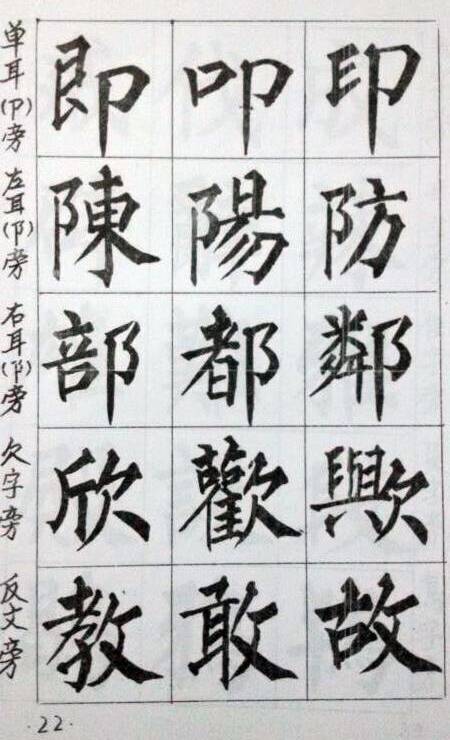 单耳(卩)旁
即 叩 印
左耳(阝)旁
陳 陽 防
右耳(阝)旁
部 都 鄰
欠字旁
欣 歡 歟
反文旁
教 敢 故
·22·